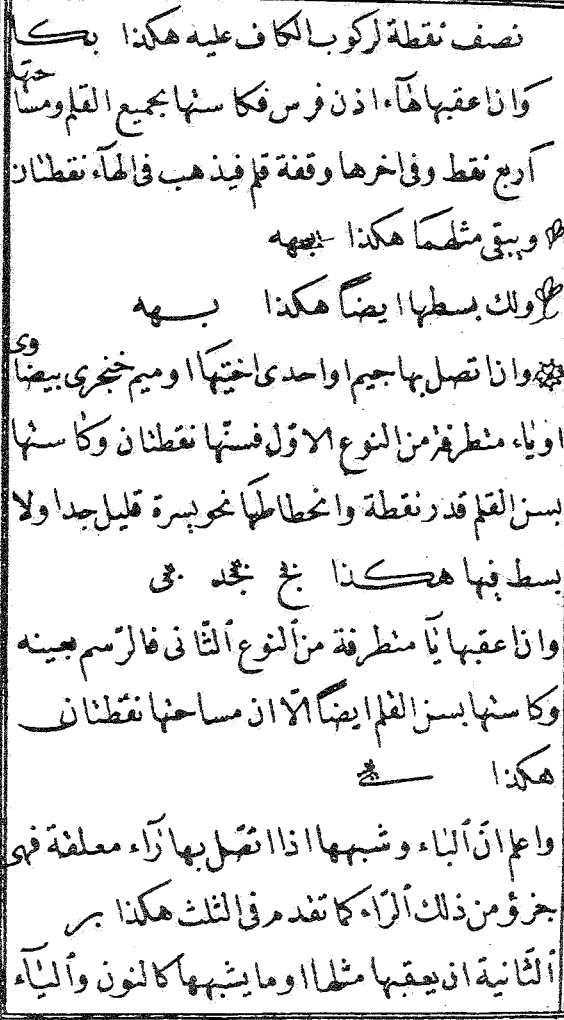 نصف نقطة لركوب الكاف عليه هكذا بكا
وان عقبها هآء اذن فرس فكاستها بجميع القلم ومساحتها
اربع نقط وفى اخرها وقفة قلم فيذهب فى الهآء نقطتان
ويبقى مثلهما هكذا بهه
ولك بسطها ايضاً هكذا بهه
واذا تصل بها جيم او احدى اختيها او ميم خنجرى بيضاوى
او ياء متطرفة من النوع الاوّل فسنّها نقطتان وكاستها
بسن القلم قدر نقطة وانحطاطها نحو يسرة قليل جدا ولا
بسط فيها هكذا بج بجد بى
واذا عقبها يآ متطرفة من ٱلنوع ٱلثّانى فالرّسم بعينه
وكاستها بسن القلم ايضاً الّا ان مساحتها نقطتان
هكذا
واعلم انّ ٱلبآء وشبهها اذا اتصّل بها رآء معلقة فهى
جزؤ من ذلك ٱلرّاء كما تقدم فى الثلث هكذا بر
ٱلثّانية ان يعقبها مثلها او ما يشبهها كالنون وٱليآء